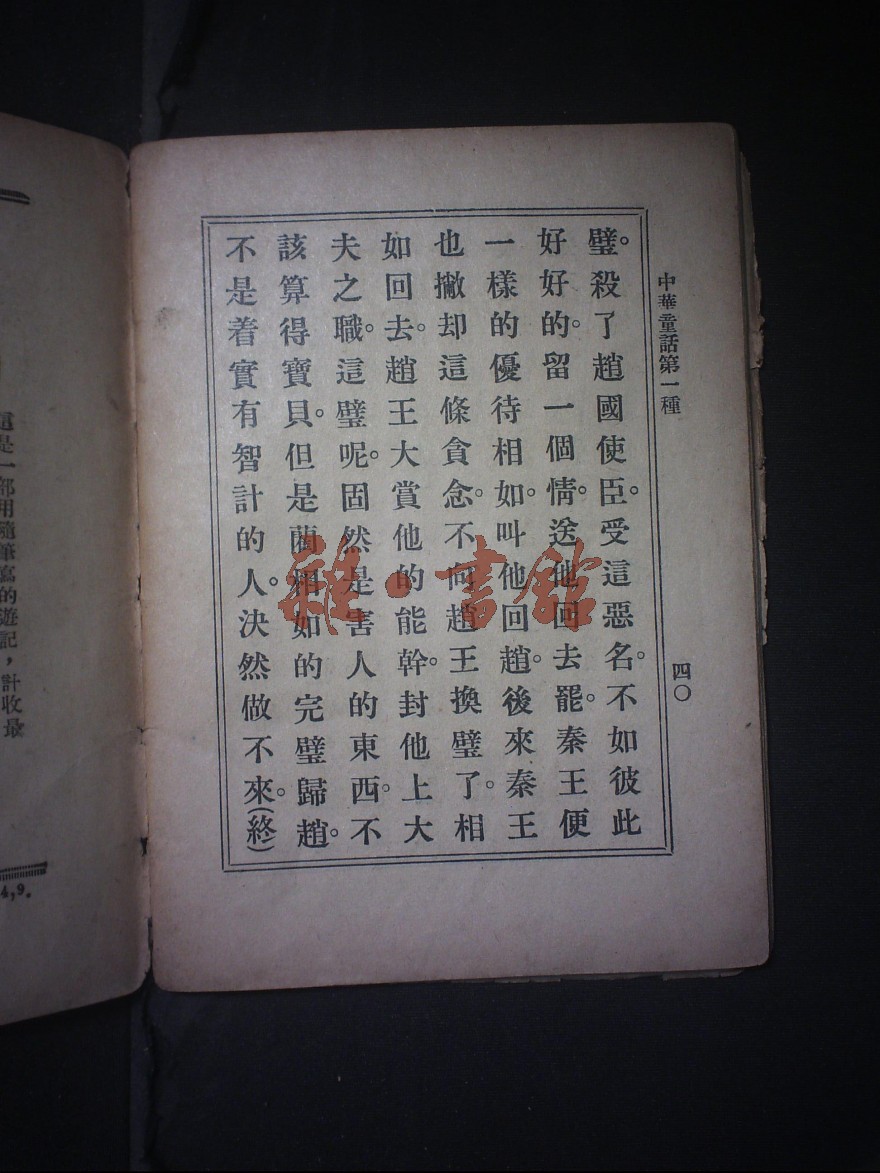 中華童話第一種
四〇
璧。殺了趙國使臣。受這惡名。不如彼此
好好的。留一個情。送他回去罷。秦王便
一樣的優待相如。叫他回趙。後來秦王
也撇却這條貪念。不向趙王換璧了。相
如回去。趙王大賞他的能幹。封他上大
夫之職。這璧呢。固然是害人的東西。不
該算得寶貝。但是藺相如的完璧歸趙。
不是着實有智計的人。決然做不來。(終)
雜·書館
這是一部用隨筆寫的遊記，計收最
4,9.